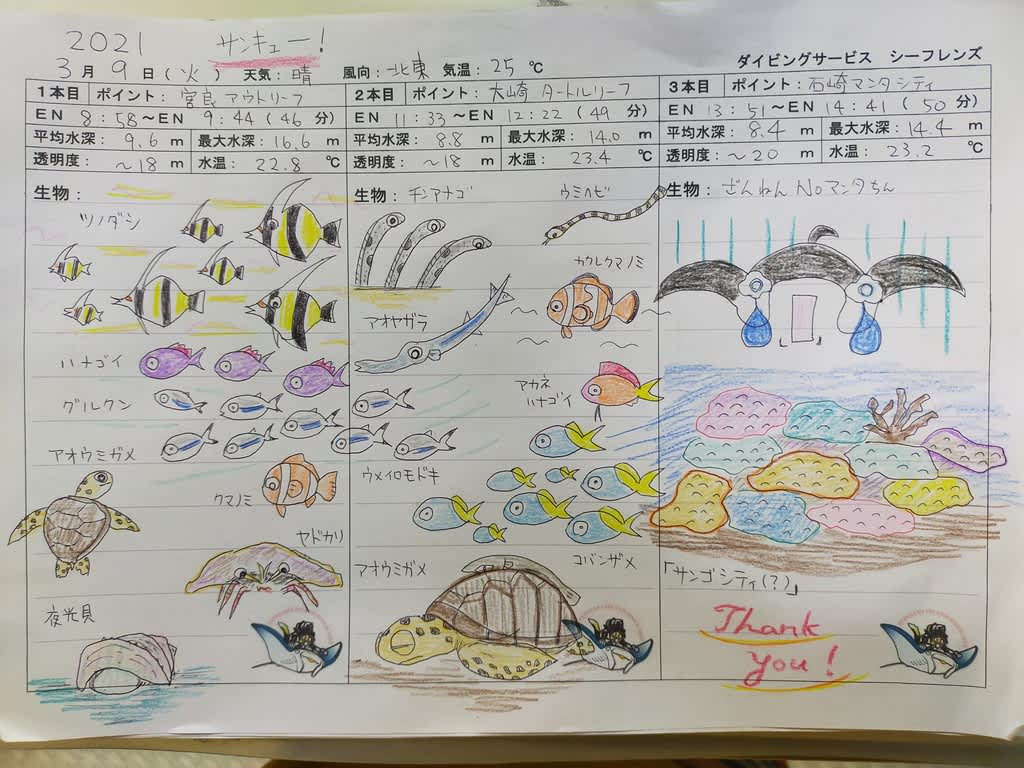 2021 サンキュー!
ダイビングサービス シーフレンズ
3月 9日(火) 天気:晴 風向:北東 気温:25℃
1本目 ポイント:宮良アウトリーフ
EN 8:58~EN 9:44(46分)
平均水深:9.6m 最大水深:16.6m
透明度:~18m 水温:22.8℃
生物:
ツノダシ
ハナゴイ
グルクン
アオウミガメ
クマノミ
ヤドカリ
夜光貝
2本目 ポイント:大崎タートルリーフ
EN 11:33~EN 12:22(49分)
平均水深:8.8m 最大水深:14.0m
透明度:~18m 水温:23.4℃
生物:チンアナゴ
ウミヘビ
カクレクマノミ
アオヤガラ
アカネハナゴイ
ウメイロモドキ
アオウミガメ
コバンザメ
3本目 ポイント:石崎マンタシティ
EN 13:51~EN 14:41(50分)
平均水深:8.4m 最大水深:14.4m
透明度:~20m 水温:23.2℃
生物:ざんねん Noマンタちん
「サンゴシティ(?)」
Thank
you!